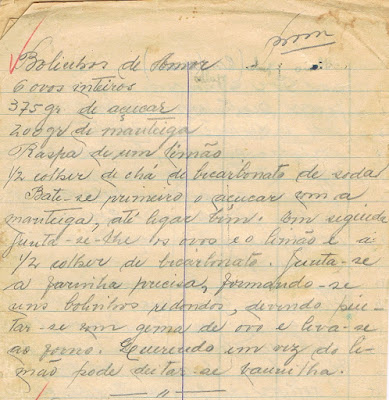 Bolinhos de Amor
6 ovos inteiros
375 gr de açucar
200 gr de manteiga
Raspa de um limão
1/2 colher de chá de bicarbonato de soda
Bate-se primeiro o açucar com a
manteiga, até ligar bem. Em seguida
junta-se-lhe os ovos e o limão e a
1/2 colher de bicarbonato. Junta-se
a farinha precisa, formando-se
uns bolinhos redondos, devendo pin-
tar-se com gema de ovo e leva-se
ao forno. Querendo em vez do li-
mão pode deitar-se baunilha.